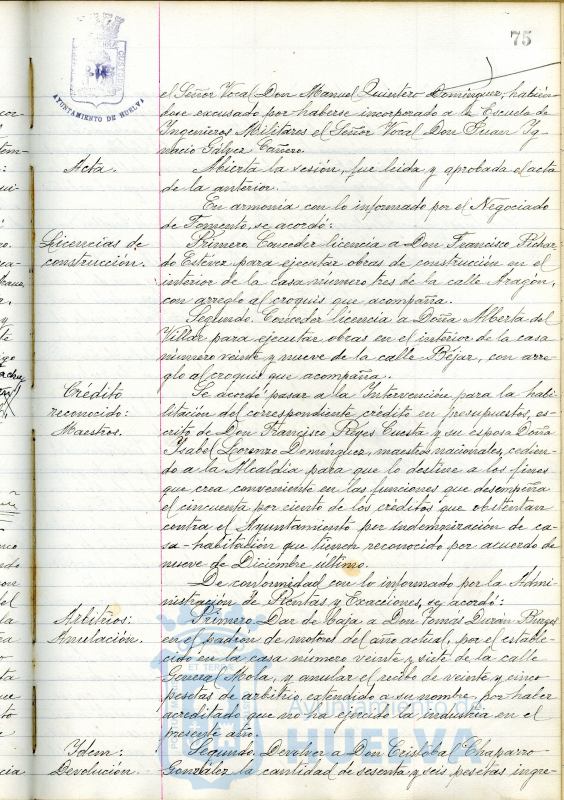 75
AYUNTAMIENTO DE HUELVA
el Señor Vocal Don Manuel Quintero Domínguez, habién-
dose excusado por haberse incorporado a la Escuela de
Ingenieros Militares el Señor Vocal Don Juan Ig-
nacio Gálvez Cañero.
Acta. Abierta la sesión, fue leída y aprobada el acta
de la anterior.
En armonía con lo informado por el Negociado
de Fomento, se acordó:
Licencias de Primero. Conceder licencia a Don Francisco Pichar-
construcción. do Estévez para ejecutar obras de construcción en el
interior de la casa número tres de la calle Aragón,
con arreglo al croquis que acompaña.
Segundo. Conceder licencia a Doña Alberta del
Villar para ejecutar obras en el interior de la casa
número veinte y nueve de la calle Béjar, con arre-
glo al croquis que acompaña.
Crédito Se acordó pasar a la Intervención para la habi-
reconocido: litación del correspondiente crédito en presupuestos, es-
Maestros. crito de Don Francisco Reyes Cuesta y su esposa Doña
Isabel Lorenzo Domínguez, maestros nacionales, cedien-
do a la Alcaldía para que lo destine a los fines
que crea conveniente en las funciones que desempeña
el cincuenta por ciento de los créditos que obstentan
contra el Ayuntamiento por indemnización de ca-
sa-habitación que tienen reconocido por acuerdo de
nueve de Diciembre último.
De conformidad con lo informado por la Admi-
nistración de Rentas y Exacciones, se acordó:
Arbitrios: Primero. Dar de baja a Don Tomás Durán Burgos
Anulación. en el padrón de motores del año actual, por el estable-
cido en la casa número veinte y siete de la calle
General Mola, y anular el recibo de veinte y cinco
pesetas de arbitrio extendido a su nombre, por haber
acreditado que no ha ejercido la industria en el
presente año.
Idem: Segundo. Devolver a Don Cristóbal Chaparro
Devolución. González la cantidad de sesenta y seis pesetas ingre-
ET TERRAE
Ayuntamiento de
HUELVA